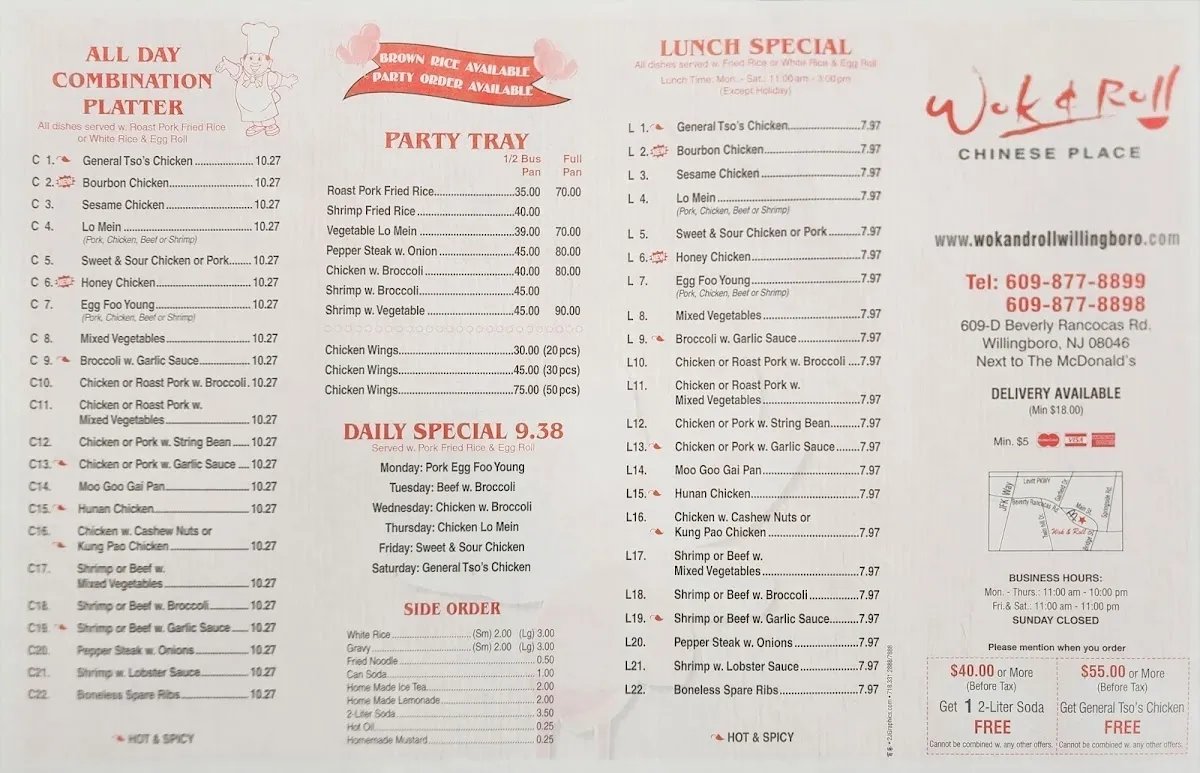 ALL DAY
COMBINATION
PLATTER
All dishes served w. Roast Pork Fried Rice
or White Rice & Egg Roll
C 1. General Tso's Chicken 10.27
C 2. Bourbon Chicken 10.27
C 3. Sesame Chicken 10.27
C 4. Lo Mein 10.27
(Pork, Chicken, Beef or Shrimp)
C 5. Sweet & Sour Chicken or Pork 10.27
C 6. Honey Chicken 10.27
C 7. Egg Foo Young 10.27
(Pork, Chicken, Beef or Shrimp)
C 8. Mixed Vegetables 10.27
C 9. Broccoli w. Garlic Sauce 10.27
C10. Chicken or Roast Pork w. Broccoli . 10.27
C11. Chicken or Roast Pork w.
Mixed Vegetables 10.27
C12. Chicken or Pork w. String Bean 10.27
C13. Chicken or Pork w. Garlic Sauce 10.27
C14. Moo Goo Gai Pan 10.27
C15. Hunan Chicken 10.27
C16. Chicken w. Cashew Nuts or
Kung Pao Chicken 10.27
C17. Shrimp or Beef w.
Mixed Vegetables 10.27
C18. Shrimp or Beef w. Broccoli 10.27
C19. Shrimp or Beef w. Garlic Sauce 10.27
C20. Pepper Steak w. Onions 10.27
C21. Shrimp w. Lobster Sauce 10.27
C22. Boneless Spare Ribs 10.27
HOT & SPICY
BROWN RICE AVAILABLE
PARTY ORDER AVAILABLE
PARTY TRAY
1/2 Bus Full
Pan Pan
Roast Pork Fried Rice 35.00 70.00
Shrimp Fried Rice 40.00
Vegetable Lo Mein 39.00 70.00
Pepper Steak w. Onion 45.00 80.00
Chicken w. Broccoli 40.00 80.00
Shrimp w. Broccoli 45.00
Shrimp w. Vegetable 45.00 90.00
Chicken Wings 30.00 (20 pcs)
Chicken Wings 45.00 (30 pcs)
Chicken Wings 75.00 (50 pcs)
DAILY SPECIAL 9.38
Served w. Pork Fried Rice & Egg Roll
Monday: Pork Egg Foo Young
Tuesday: Beef w. Broccoli
Wednesday: Chicken w. Broccoli
Thursday: Chicken Lo Mein
Friday: Sweet & Sour Chicken
Saturday: General Tso's Chicken
SIDE ORDER
White Rice (Sm) 2.00 (Lg) 3.00
Gravy (Sm) 2.00 (Lg) 3.00
Fried Noodle 0.50
Can Soda 1.00
Home Made Ice Tea 2.00
Home Made Lemonade 2.00
2-Liter Soda 3.50
Hot Oil 0.25
Homemade Mustard 0.25
LUNCH SPECIAL
All dishes served w. Fried Rice or White Rice & Egg Roll
Lunch Time: Mon. - Sat.: 11:00 am - 3:00 pm
(Except Holiday)
L 1. General Tso's Chicken 7.97
L 2. Bourbon Chicken 7.97
L 3. Sesame Chicken 7.97
L 4. Lo Mein 7.97
(Pork, Chicken, Beef or Shrimp)
L 5. Sweet & Sour Chicken or Pork 7.97
L 6. Honey Chicken 7.97
L 7. Egg Foo Young 7.97
(Pork, Chicken, Beef or Shrimp)
L 8. Mixed Vegetables 7.97
L 9. Broccoli w. Garlic Sauce 7.97
L10. Chicken or Roast Pork w. Broccoli 7.97
L11. Chicken or Roast Pork w.
Mixed Vegetables 7.97
L12. Chicken or Pork w. String Bean 7.97
L13. Chicken or Pork w. Garlic Sauce 7.97
L14. Moo Goo Gai Pan 7.97
L15. Hunan Chicken 7.97
L16. Chicken w. Cashew Nuts or
Kung Pao Chicken 7.97
L17. Shrimp or Beef w.
Mixed Vegetables 7.97
L18. Shrimp or Beef w. Broccoli 7.97
L19. Shrimp or Beef w. Garlic Sauce 7.97
L20. Pepper Steak w. Onions 7.97
L21. Shrimp w. Lobster Sauce 7.97
L22. Boneless Spare Ribs 7.97
HOT & SPICY
Wok & Roll
CHINESE PLACE
www.wokandrollwillingboro.com
Tel: 609-877-8899
609-877-8898
609-D Beverly Rancocas Rd.
Willingboro, NJ 08046
Next to The McDonald's
DELIVERY AVAILABLE
(Min $18.00)
Min. $5 VISA
Levitt PKWY
JFK Way
Beverly Rancocas Rd.
Wok & Roll
BUSINESS HOURS:
Mon. - Thurs.: 11:00 am - 10:00 pm
Fri.& Sat.: 11:00 am - 11:00 pm
SUNDAY CLOSED
Please mention when you order
$40.00 or More
(Before Tax)
Get 1 2-Liter Soda
FREE
Cannot be combined w. any other offers.
$55.00 or More
(Before Tax)
Get General Tso's Chicken
FREE
Cannot be combined w. any other offers.